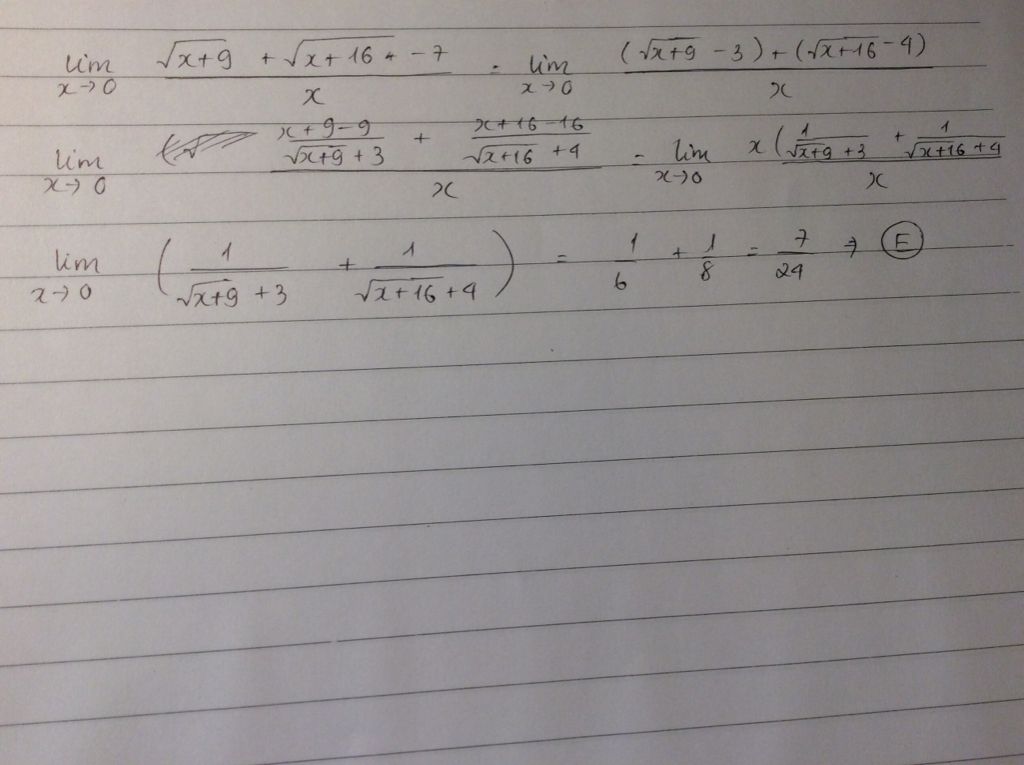 lim x→0 (√(x+9) + √(x+16) - 7)/x = lim x→0 ((√(x+9) - 3) + (√(x+16) - 4))/x
lim x→0 ((x+9-9)/(√(x+9) + 3) + (x+16-16)/(√(x+16) + 4))/x = lim x→0 x(1/(√(x+9) + 3) + 1/(√(x+16) + 4)/x
lim x→0 (1/(√(x+9) + 3) + 1/(√(x+16) + 4)) = 1/6 + 1/8 = 7/24 ⇒ E